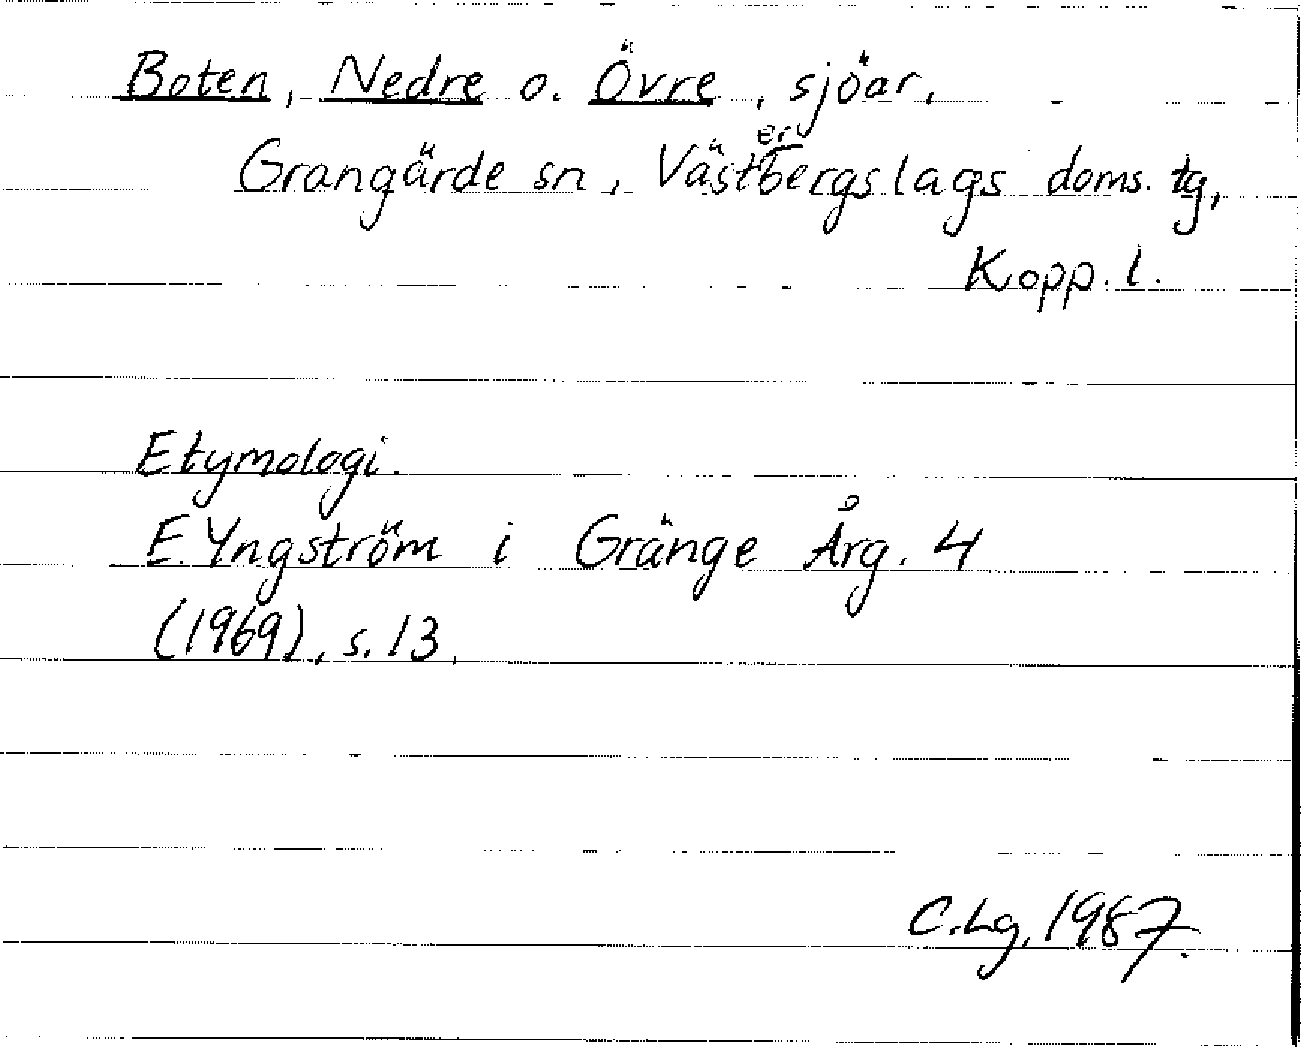 Boten, Nedre o. Övre, sjöar,
Grangärde sn, Västerbergslags doms. tg,
Kopp. l.
Etymologi.
E. Yngström i Gränge Årg. 4
(1969), s. 13.
C. Lg, 1987.